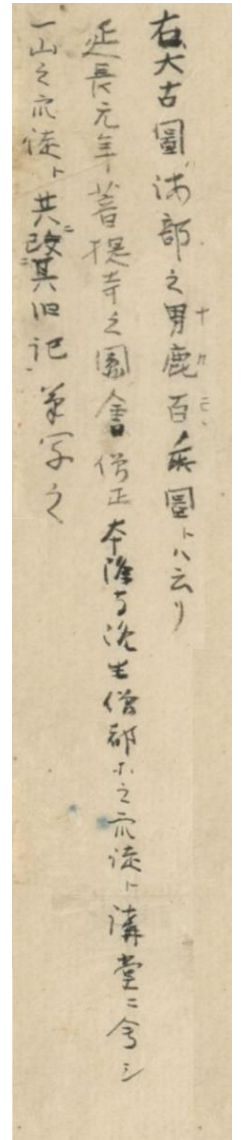 右大古圖海部之男鹿百乗圖トハ云リ
延長元年菩提寺之圖書僧正本隆寺僧都ホ之衆徒ト講堂ニ會シ
一山之衆徒ト共ニ改其旧記ニ筆写之